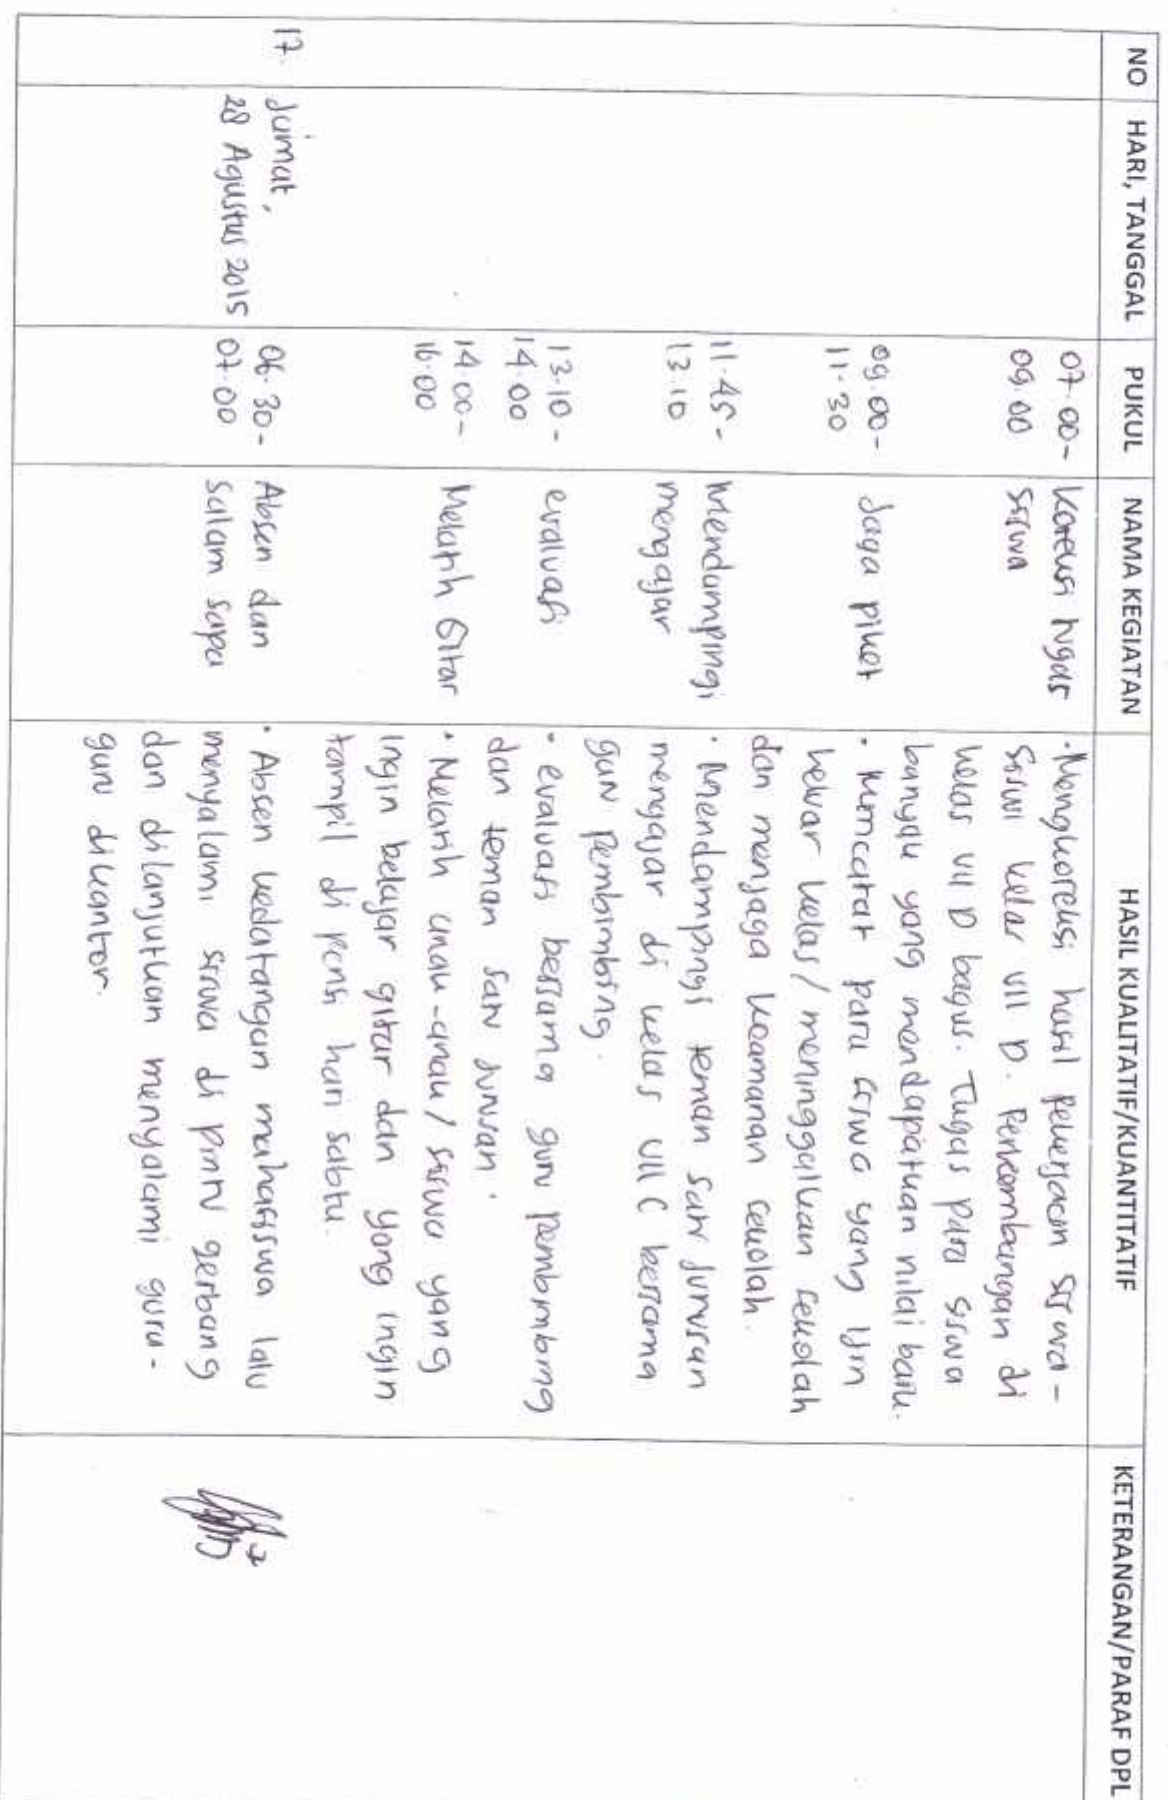 NO HARI, TANGGAL PUKUL NAMA KEGIATAN HASIL KUALITATIF/KUANTITATIF KETERANGAN/PARAF DPL
07.00- Koreksi tugas · Mengkoreksi hasil pekerjaan siswa-
09.00 siswa siswi kelas VII D. Perkembangan di
kelas VII D bagus. Tugas para siswa
banyak yang mendapatkan nilai baik.
09.00- Jaga piket · Mencatat para siswa yang Ijin
11.30 keluar kelas/ meninggalkan sekolah
dan menjaga keamanan sekolah.
11.45- Mendampingi · Mendampingi teman satu jurusan
13.10 mengajar mengajar di kelas VII C bersama
guru pembimbing.
13.10- evaluasi · evaluasi bersama guru pembimbing
14.00 dan teman satu jurusan.
14.00- Melatih Gitar · Melatih anak-anak/ siswa yang
16.00 ingin belajar gitar dan yang ingin
tampil di pensi hari sabtu.
17. Jumat, 06.30- Absen dan · Absen kedatangan mahasiswa lalu
28 Agustus 2015 07.00 salam sapa menyalami siswa di pintu gerbang
dan dilanjutkan menyalami guru-
guru dikantor.